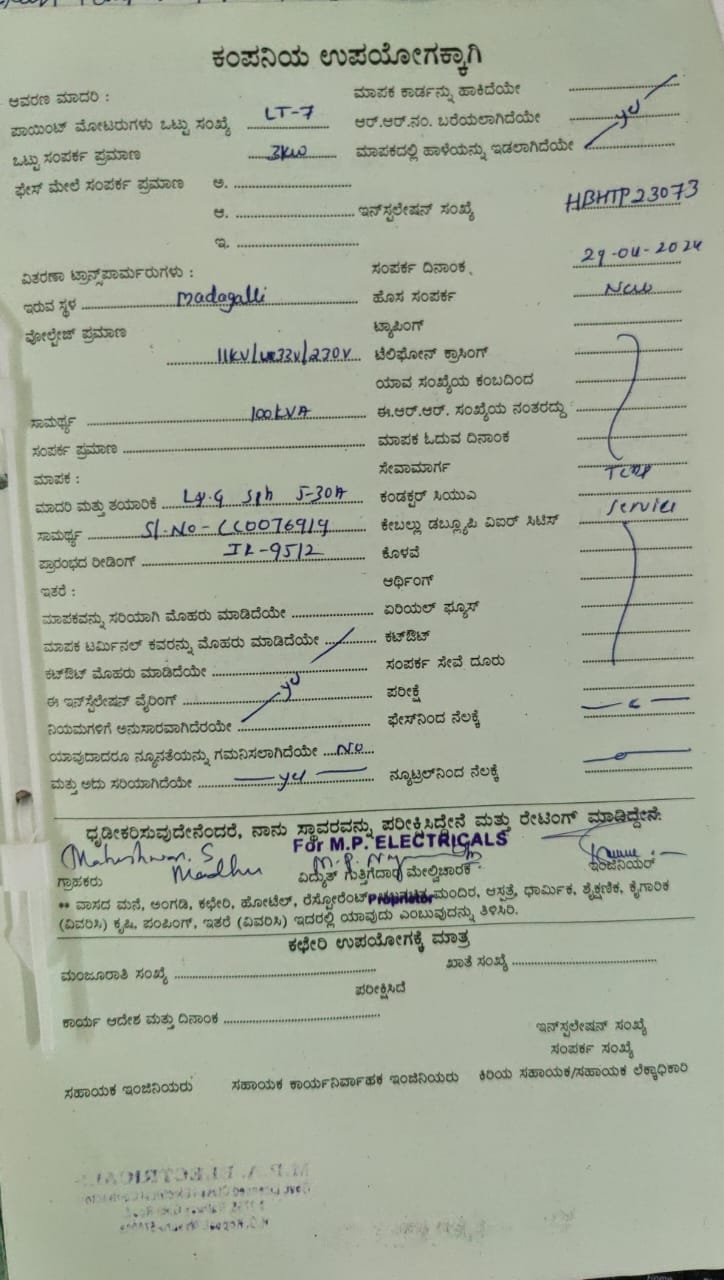 ಕಂಪನಿಯ ಉಪಯೋಗಕ್ಕಾಗಿ
ಆವರಣ ಮಾದರಿ :
ಪಾಯಿಂಟ್ ಮೋಟರುಗಳು ಒಟ್ಟು ಸಂಖ್ಯೆ LT-7
ಒಟ್ಟು ಸಂಪರ್ಕ ಪ್ರಮಾಣ 3KW
ಫೇಸ್ ಮೇಲೆ ಸಂಪರ್ಕ ಪ್ರಮಾಣ ಅ.
ಆ.
ಇ.
ಮಾಪಕ ಕಾರ್ಡನ್ನು ಹಾಕಿದೆಯೇ
ಆರ್.ಆರ್.ನಂ. ಬರೆಯಲಾಗಿದೆಯೇ yes
ಮಾಪಕದಲ್ಲಿ ಹಾಳೆಯನ್ನು ಇಡಲಾಗಿದೆಯೇ
ಇನ್‌ಸ್ಟಲೇಷನ್ ಸಂಖ್ಯೆ HBHTP23073
ವಿತರಣಾ ಟ್ರಾನ್ಸ್‌ಫಾರ್ಮರುಗಳು :
ಇರುವ ಸ್ಥಳ Madagalli
ವೋಲ್ಟೇಜ್ ಪ್ರಮಾಣ
11KV/433V/230V
ಸಾಮರ್ಥ್ಯ 100KVA
ಸಂಪರ್ಕ ಪ್ರಮಾಣ
ಮಾಪಕ :
ಮಾದರಿ ಮತ್ತು ತಯಾರಿಕೆ L&G Sph 5-30A
ಸಾಮರ್ಥ್ಯ Sl.No-
ಪ್ರಾರಂಭದ ರೀಡಿಂಗ್ IR-95/2
ಇತರೆ :
ಮಾಪಕವನ್ನು ಸರಿಯಾಗಿ ಮೊಹರು ಮಾಡಿದೆಯೇ
ಮಾಪಕ ಟರ್ಮಿನಲ್ ಕವರನ್ನು ಮೊಹರು ಮಾಡಿದೆಯೇ
ಕಟ್‌ಔಟ್ ಮೊಹರು ಮಾಡಿದೆಯೇ
ಈ ಇನ್‌ಸ್ಟಲೇಷನ್ ವೈರಿಂಗ್ yes
ನಿಯಮಗಳಿಗೆ ಅನುಸಾರವಾಗಿದೆರಯೇ
ಯಾವುದಾದರೂ ನ್ಯೂನತೆಯನ್ನು ಗಮನಿಸಲಾಗಿದೆಯೇ No
ಮತ್ತು ಅದು ಸರಿಯಾಗಿದೆಯೇ yes
ಸಂಪರ್ಕ ದಿನಾಂಕ 29-04-2024
ಹೊಸ ಸಂಪರ್ಕ New
ಟ್ಯಾಪಿಂಗ್
ಟೆಲಿಫೋನ್ ಕ್ರಾಸಿಂಗ್
ಯಾವ ಸಂಖ್ಯೆಯ ಕಂಬದಿಂದ
ಈ.ಆರ್.ಆರ್. ಸಂಖ್ಯೆಯ ನಂತರದ್ದು
ಮಾಪಕ ಓದುವ ದಿನಾಂಕ
ಸೇವಾಮಾರ್ಗ
ಕಂಡಕ್ಟರ್ ಸಿಯುಎ
ಕೇಬಲ್ಲು ಡಬ್ಲ್ಯೂಪಿ ವಿಐರ್ ಸಿಟಿಸ್ Service
ಕೊಳವೆ
ಆರ್ಥಿಂಗ್
ಏರಿಯಲ್ ಫ್ಯೂಸ್
ಕಟ್‌ಔಟ್
ಸಂಪರ್ಕ ಸೇವೆ ದೂರು
ಪರೀಕ್ಷೆ
ಫೇಸ್‌ನಿಂದ ನೆಲಕ್ಕೆ
ನ್ಯೂಟ್ರಲ್‌ನಿಂದ ನೆಲಕ್ಕೆ
ಧೃಡೀಕರಿಸುವುದೇನೆಂದರೆ, ನಾನು ಸ್ಥಾವರವನ್ನು ಪರೀಕ್ಷಿಸಿದ್ದೇನೆ ಮತ್ತು ರೇಟಿಂಗ್ ಮಾಡಿದ್ದೇನೆ.
For M.P. ELECTRICALS
Maheshwari. S
Madhu
ಗ್ರಾಹಕರು ವಿದ್ಯುತ್ ಗುತ್ತಿಗೆದಾರ/ಮೇಲ್ವಿಚಾರಕ ಇಂಜಿನಿಯರ್
Proprietor
** ವಾಸದ ಮನೆ, ಅಂಗಡಿ, ಕಛೇರಿ, ಹೋಟೆಲ್, ರೆಸ್ಟೋರೆಂಟ್ ಮಂದಿರ, ಆಸ್ಪತ್ರೆ, ಧಾರ್ಮಿಕ, ಶೈಕ್ಷಣಿಕ, ಕೈಗಾರಿಕ
(ವಿವರಿಸಿ) ಕೃಷಿ, ಪಂಪಿಂಗ್, ಇತರೆ (ವಿವರಿಸಿ) ಇದರಲ್ಲಿ ಯಾವುದು ಎಂಬುವುದನ್ನು ತಿಳಿಸಿರಿ.
ಕಛೇರಿ ಉಪಯೋಗಕ್ಕೆ ಮಾತ್ರ
ಮಂಜೂರಾತಿ ಸಂಖ್ಯೆ ಖಾತೆ ಸಂಖ್ಯೆ
ಪರೀಕ್ಷಿಸಿದೆ
ಕಾರ್ಯ ಆದೇಶ ಮತ್ತು ದಿನಾಂಕ
ಇನ್‌ಸ್ಟಲೇಷನ್ ಸಂಖ್ಯೆ
ಸಂಪರ್ಕ ಸಂಖ್ಯೆ
ಸಹಾಯಕ ಇಂಜಿನಿಯರು ಸಹಾಯಕ ಕಾರ್ಯನಿರ್ವಾಹಕ ಇಂಜಿನಿಯರು ಕಿರಿಯ ಸಹಾಯಕ/ಸಹಾಯಕ ಲೆಕ್ಕಾಧಿಕಾರಿ